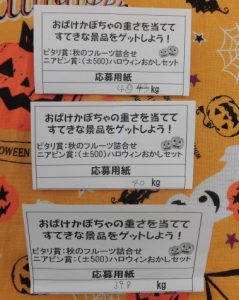 おばけかぼちゃの重さを当てて
すてきな景品をゲットしよう！
ピタリ賞：秋のフルーツ詰合せ
ニアピン賞：(±500)ハロウィンおかしセット
応募用紙
kg
おばけかぼちゃの重さを当てて
すてきな景品をゲットしよう！
ピタリ賞：秋のフルーツ詰合せ
ニアピン賞：(±500)ハロウィンおかしセット
応募用紙
40 kg
おばけかぼちゃの重さを当てて
すてきな景品をゲットしよう！
ピタリ賞：秋のフルーツ詰合せ
ニアピン賞：(±500)ハロウィンおかしセット
応募用紙
39.8 kg